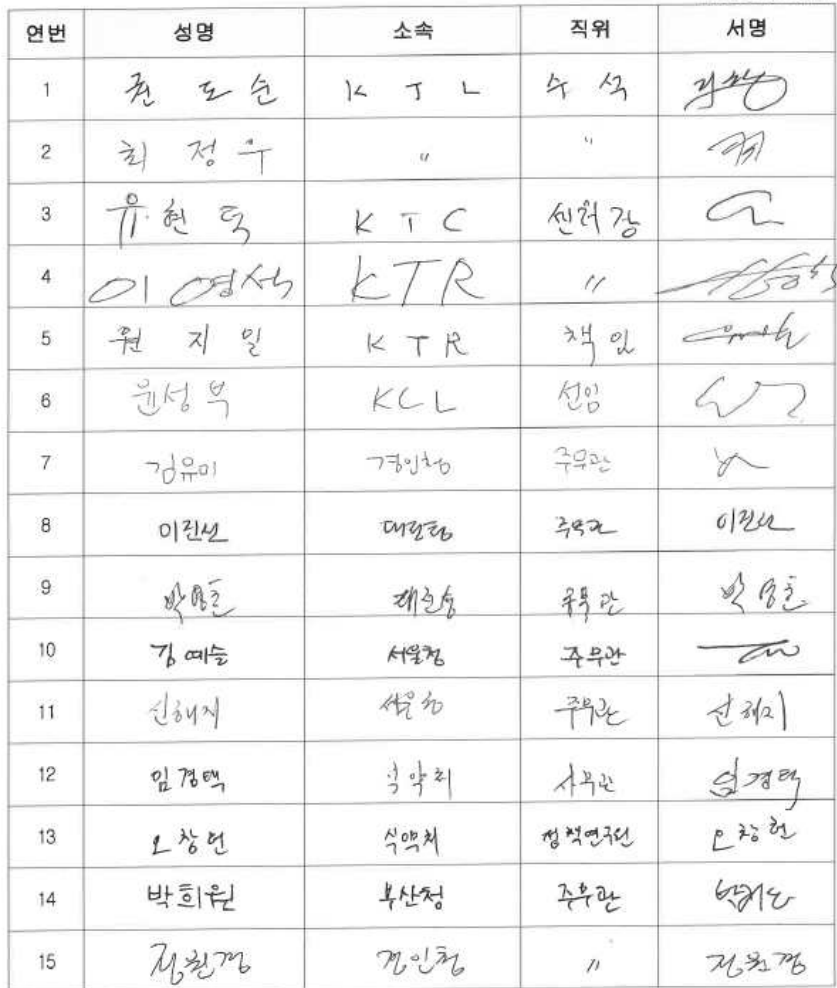 연번 성명 소속 직위 서명
1 권 도 순 K T L 수 석
2 최 정 우 〃 〃
3 유 현 덕 K T C 센터장
4 이영석 KTR 〃
5 원 지 일 K T R 책임
6 윤성부 KCL 선임
7 김유미 경인청 주무관
8 이진선 대전청 주무관 이진선
9 박영준 주무관 박영준
10 김예슬 서울청 주무관
11 신해지 서울청 주무관 신해지
12 임경택 식약처 사무관 임경택
13 오창헌 식약처 정책연구원 오창헌
14 박희원 부산청 주무관
15 경인청 〃